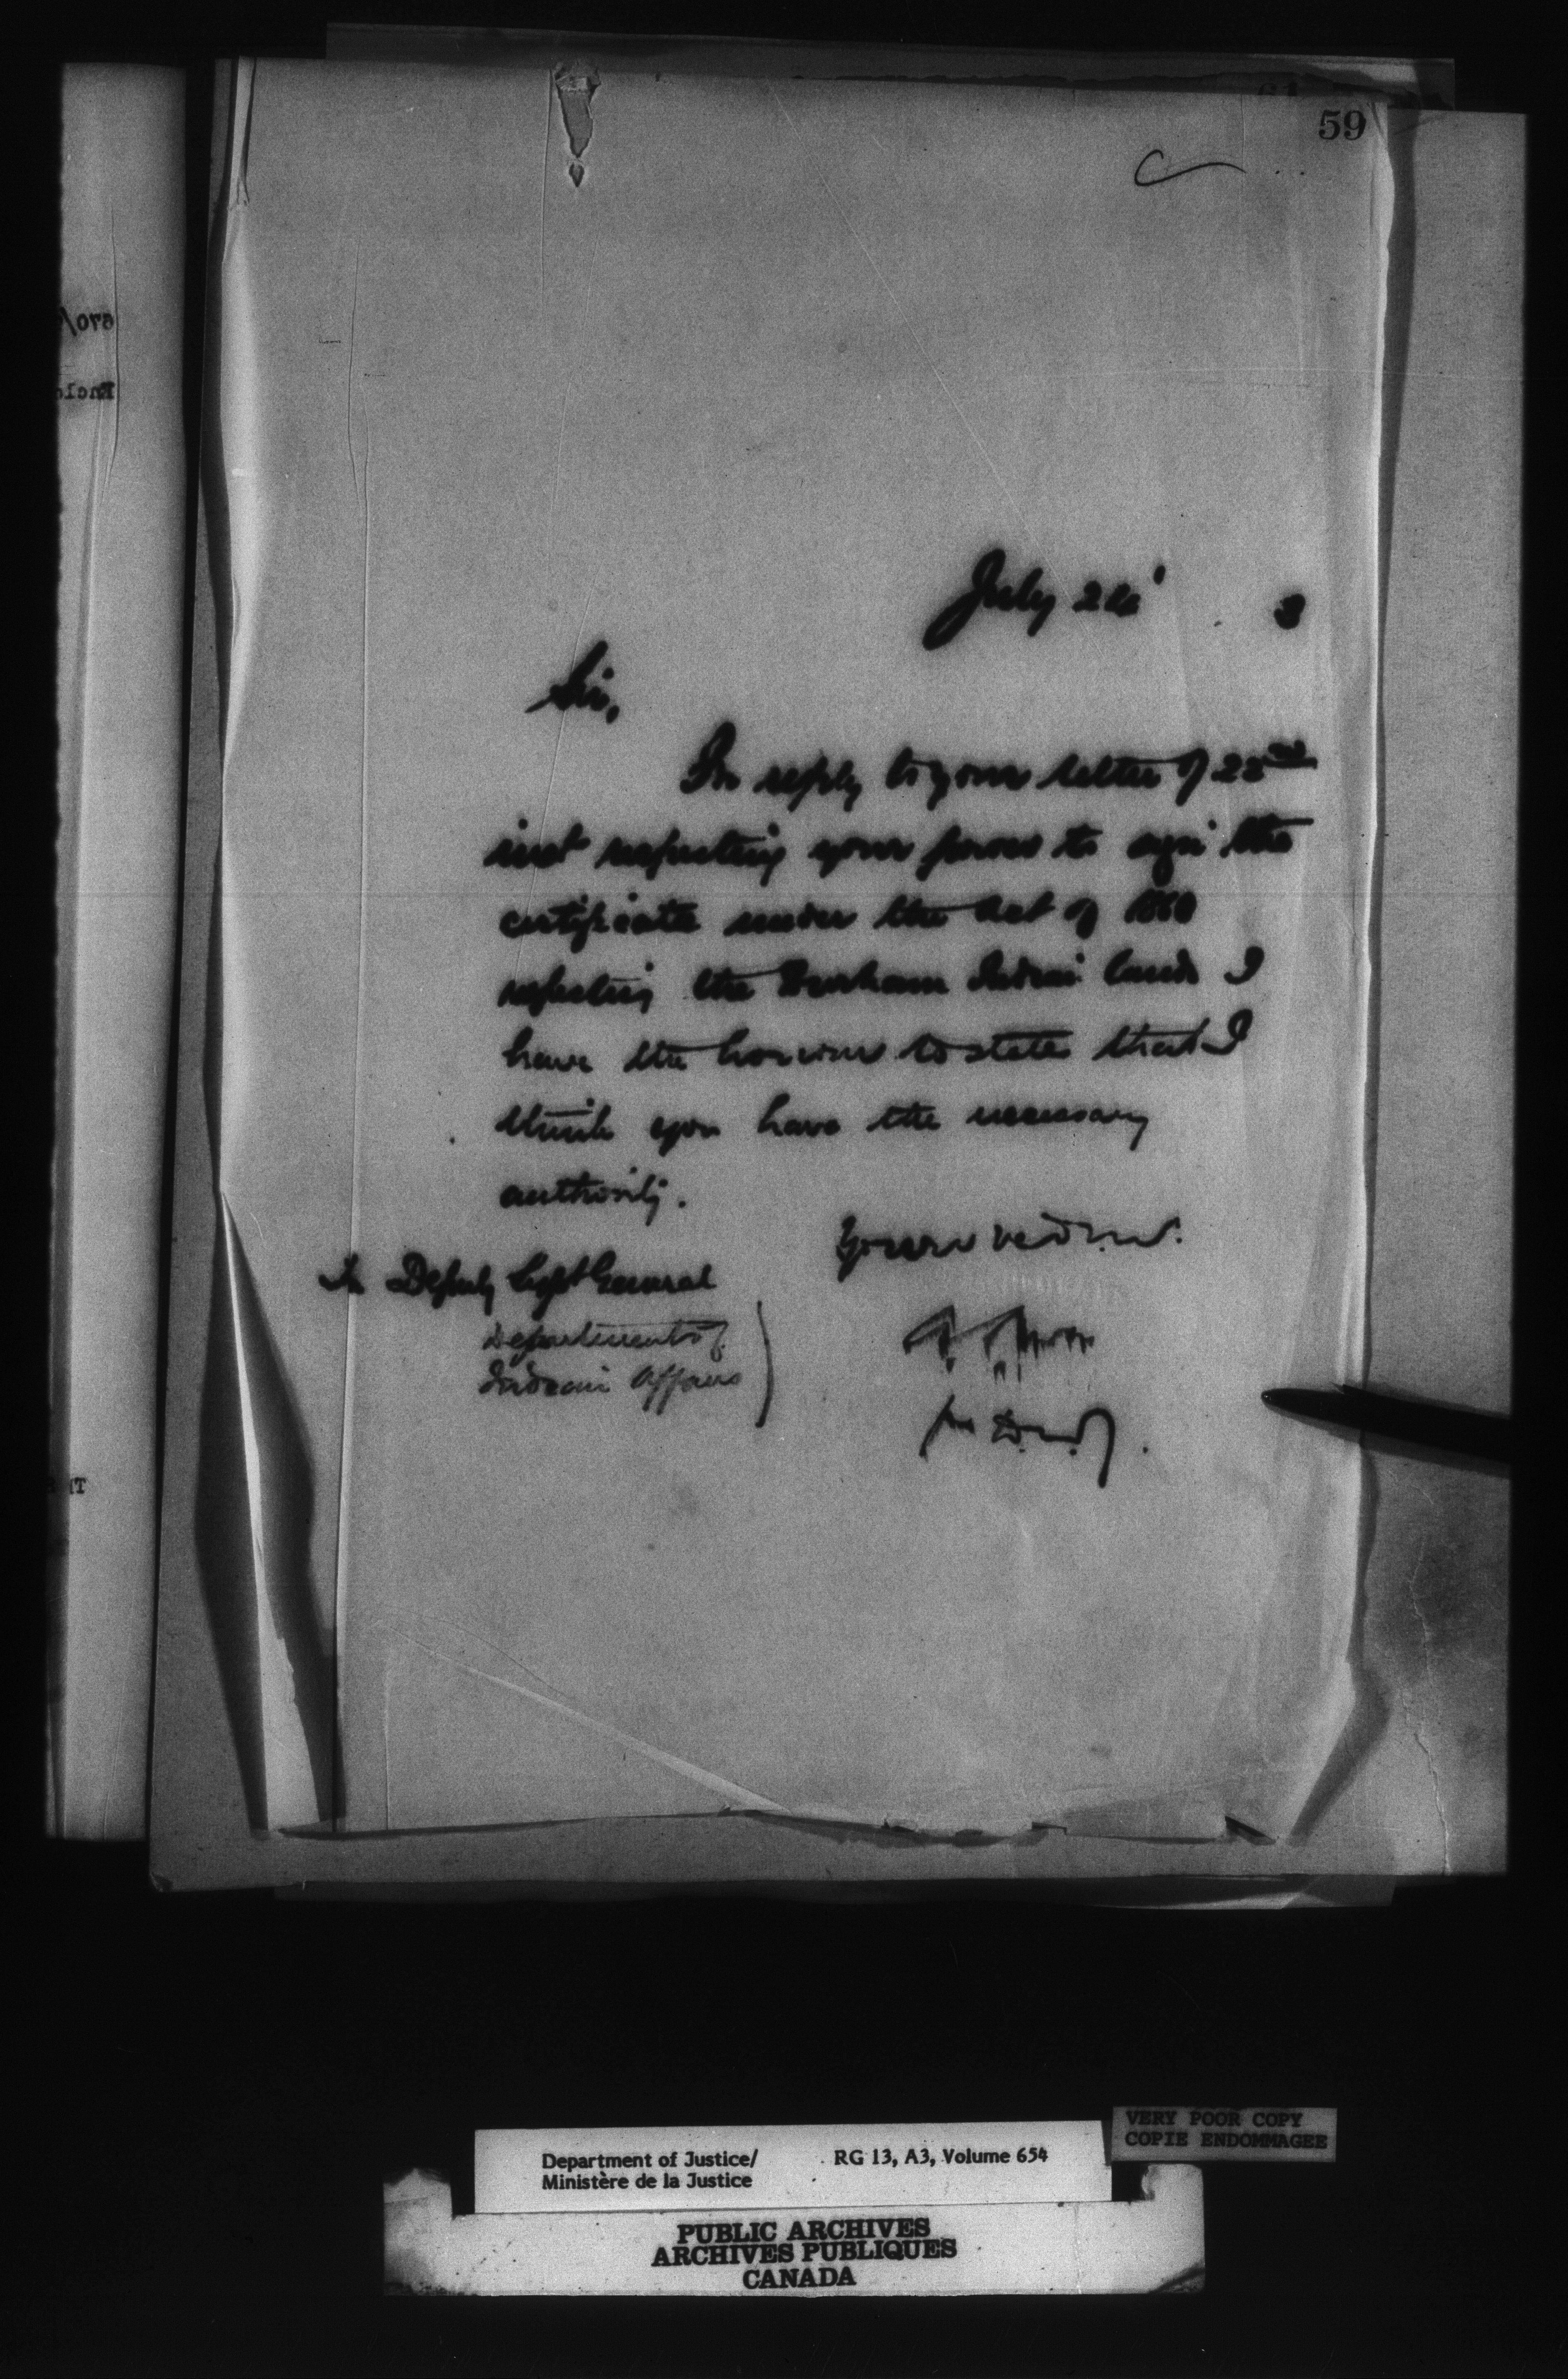 59
July 24' 3
Sir,
In reply to your letter of 22nd
inst respecting your power to sign the
certificate under the Act of 1860
respecting the Durham Indian lands I
have the honour to state that I
think you have the necessary
authority.
Yours
Deputy Supt General
Department of
Indian Affairs
for D.M.J.
670/
Enclo
VERY POOR COPY
COPIE ENDOMMAGEE
Department of Justice/ RG 13, A3, Volume 654
Ministère de la Justice
PUBLIC ARCHIVES
ARCHIVES PUBLIQUES
CANADA